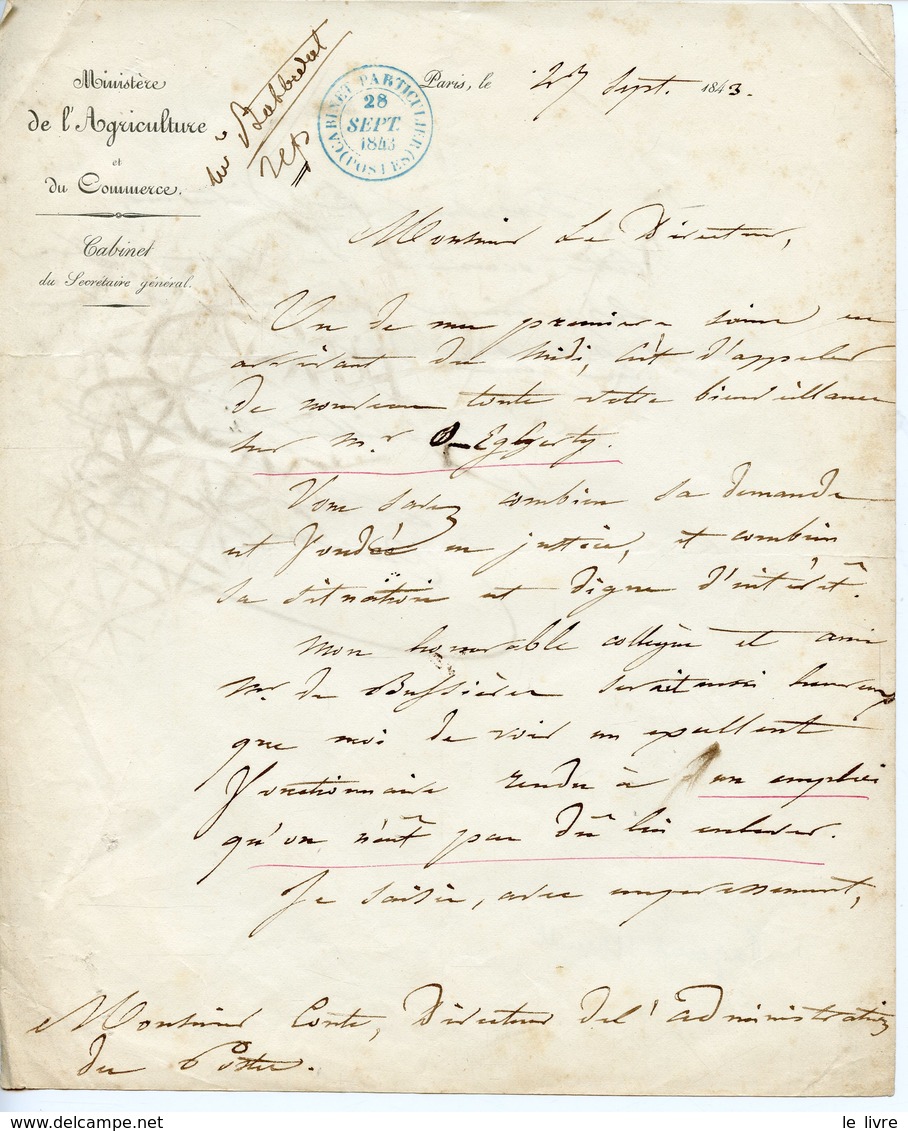 Ministère
de l'Agriculture
et
du Commerce.
Cabinet
du Secrétaire général.
rép
CABINET PARTICULIER (POSTES)
28
SEPT.
1843
Paris, le 27 Sept. 1843.
Monsieur Le Directeur,
Un de mes premiers soins en
arrivant du midi, est d'appeler
de nouveau toute votre bienveillance
sur Mr O-Eggerty.
Vous savez combien sa demande
est fondée en justice, et combien
sa situation est digne d'intérêt.
Mon honorable collègue et ami
Mr de Bussières serait aussi heureux
que moi de voir un excellent
fonctionnaire rendu à un emploi
qu'on n'eût pas dû lui enlever.
Je saisis, avec empressement,
Monsieur Conte, Directeur de l'administration
des Postes.
le livre